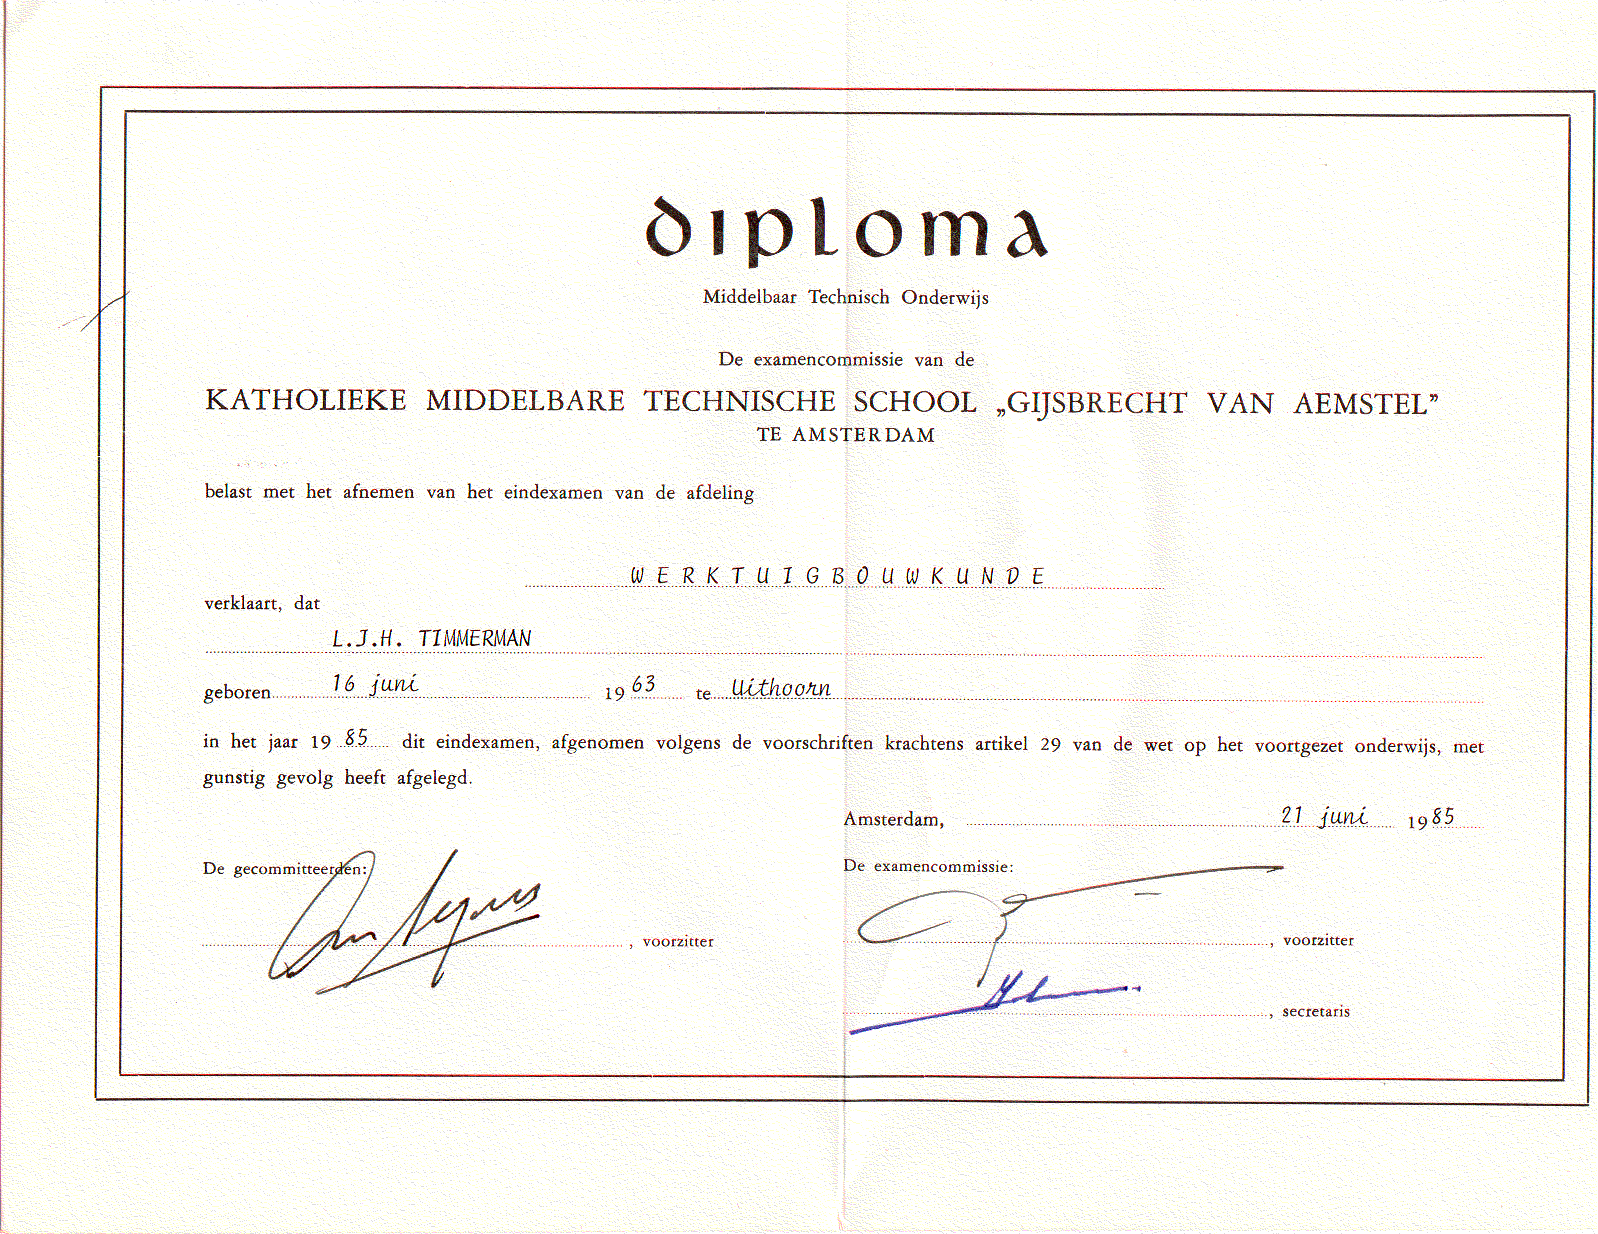 diploma
Middelbaar Technisch Onderwijs
De examencommissie van de
KATHOLIEKE MIDDELBARE TECHNISCHE SCHOOL „GIJSBRECHT VAN AEMSTEL”
TE AMSTERDAM
belast met het afnemen van het eindexamen van de afdeling
WERKTUIGBOUWKUNDE
verklaart, dat
L.J.H. TIMMERMAN
geboren 16 juni 1963 te Uithoorn
in het jaar 1985 dit eindexamen, afgenomen volgens de voorschriften krachtens artikel 29 van de wet op het voortgezet onderwijs, met
gunstig gevolg heeft afgelegd.
Amsterdam, 21 juni 1985
De gecommitteerden:
, voorzitter
De examencommissie:
, voorzitter
, secretaris